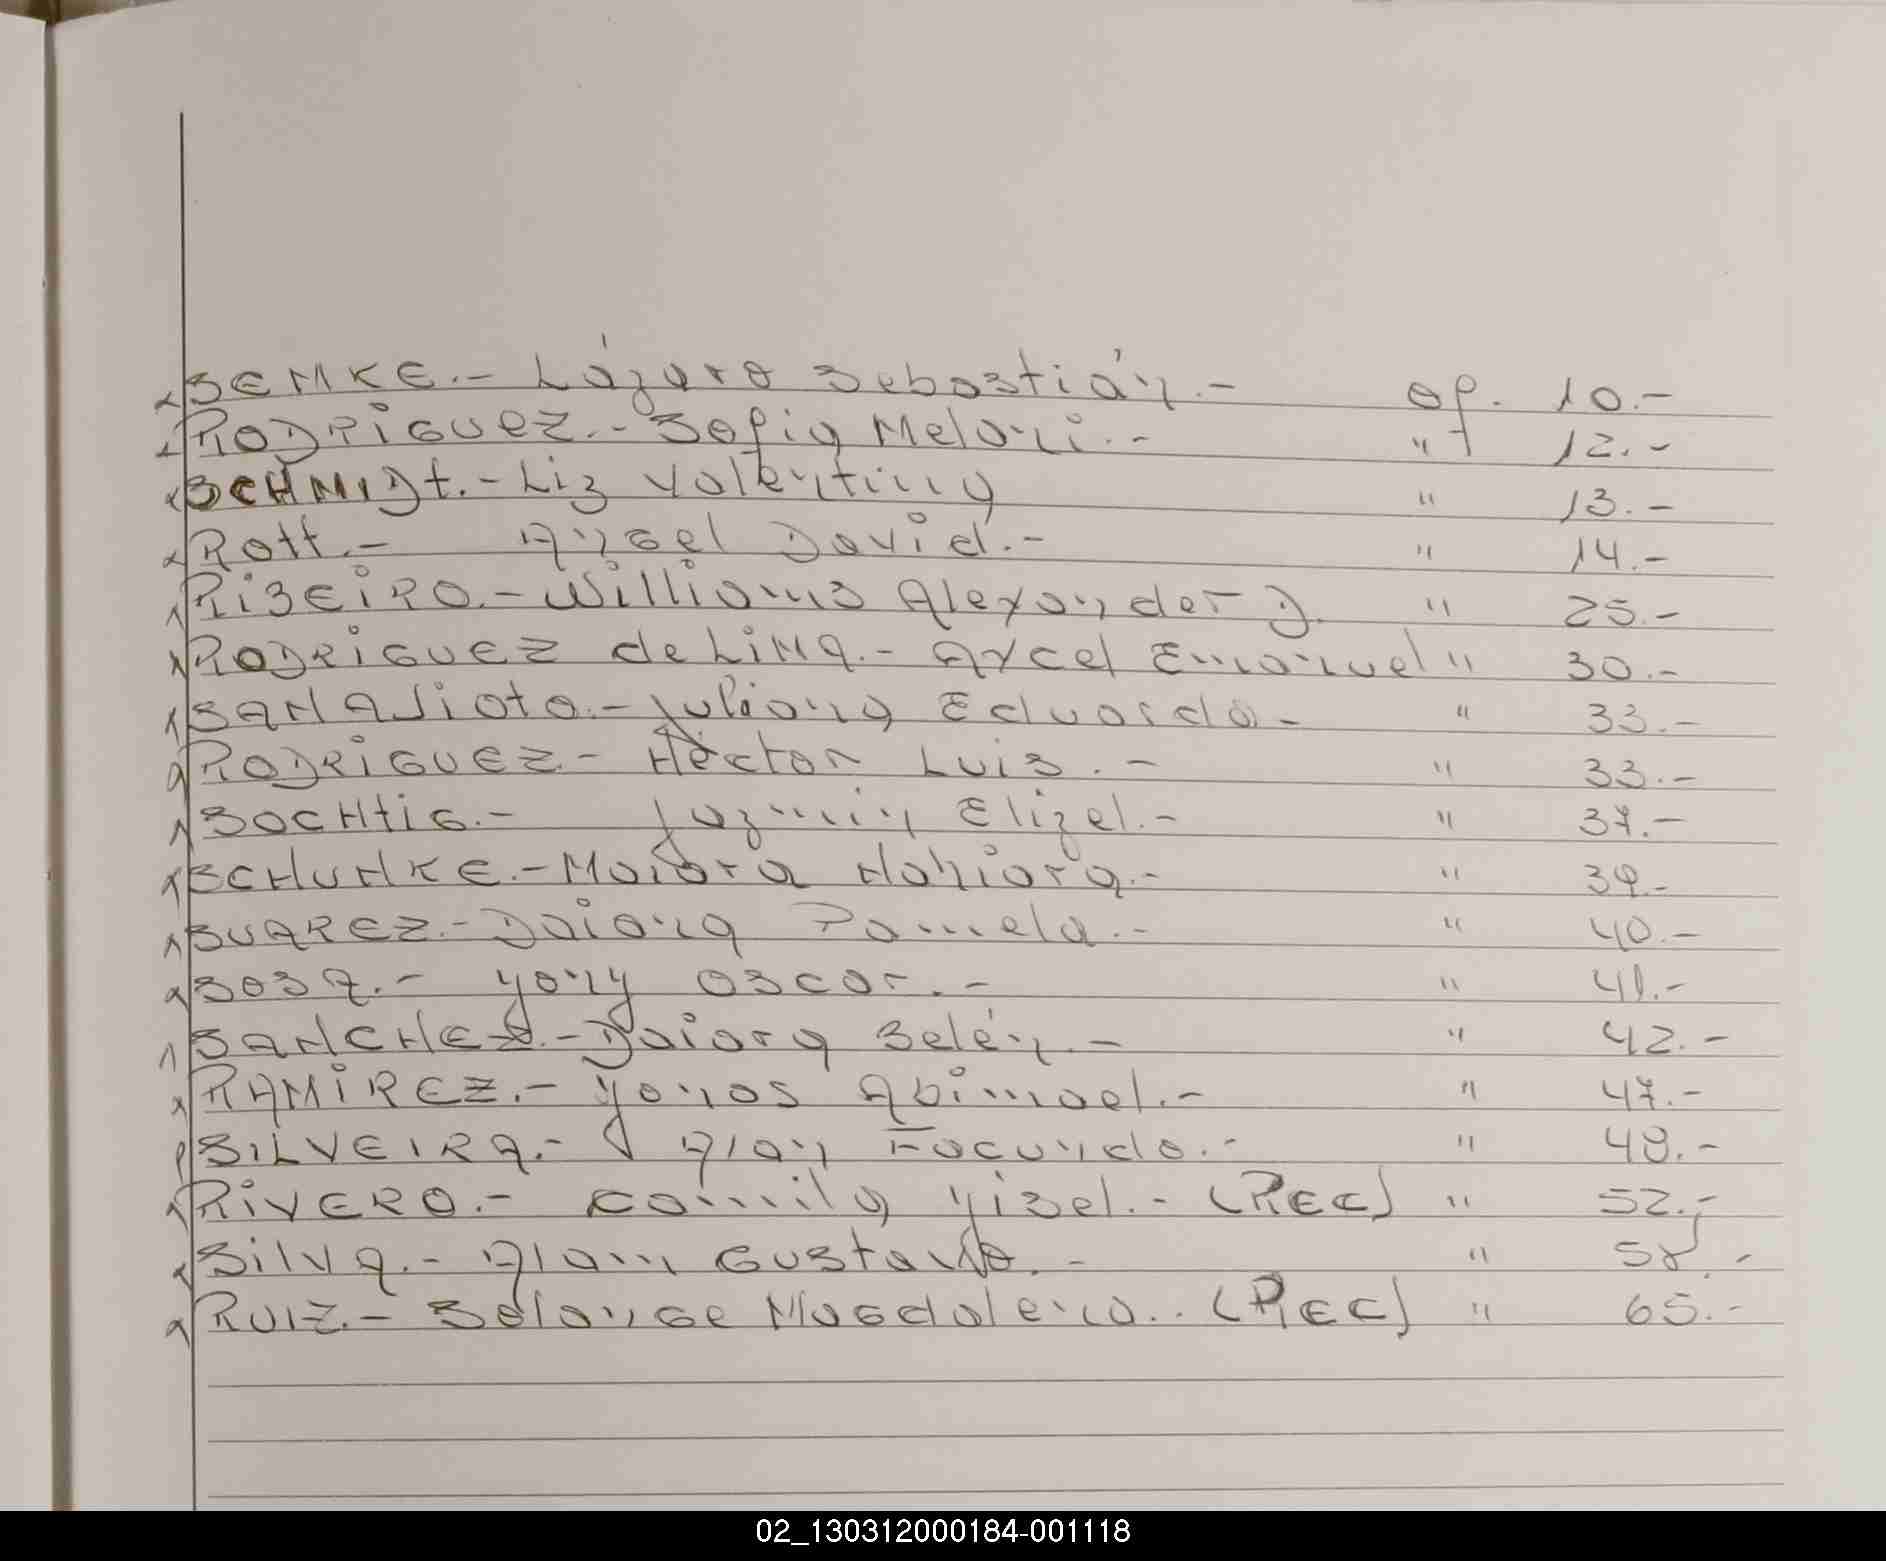 SEMKE.- Lázaro Sebastián.- of. 10.-
RODRIGUEZ.- Sofia Melani.- " 12.-
SCHMIDt.- Liz Valentina " 13.-
Rott.- Angel David.- " 14.-
RiBEiRO.- Willians Alexander D. " 25.-
RODRiGUEZ de LiMa.- Axcel Emanuel " 30.-
SANAJiOtO.- Juliana Eduarda- " 33.-
RODRiGUEZ.- Héctor Luis.- " 33.-
SOCHtiG.- Jazmin Elizel.- " 37.-
SCHUNKE.- Maiara Nahiara.- " 39.-
SUAREZ.- Daiana Pamela.- " 40.-
SOSa.- yony Oscar.- " 41.-
SANCHEZ.- Daiara Belén.- " 42.-
RAMiREZ.- yonas Abimael.- " 47.-
SiLVEIRa.- Alan Facundo.- " 48.-
RiVERO.- Camila yisel.- (REC) " 52.-
Silva.- Alam Gustavo.- " 58.-
RUIZ.- Solange Magdalena.. (REC) " 65.-
02_130312000184-001118